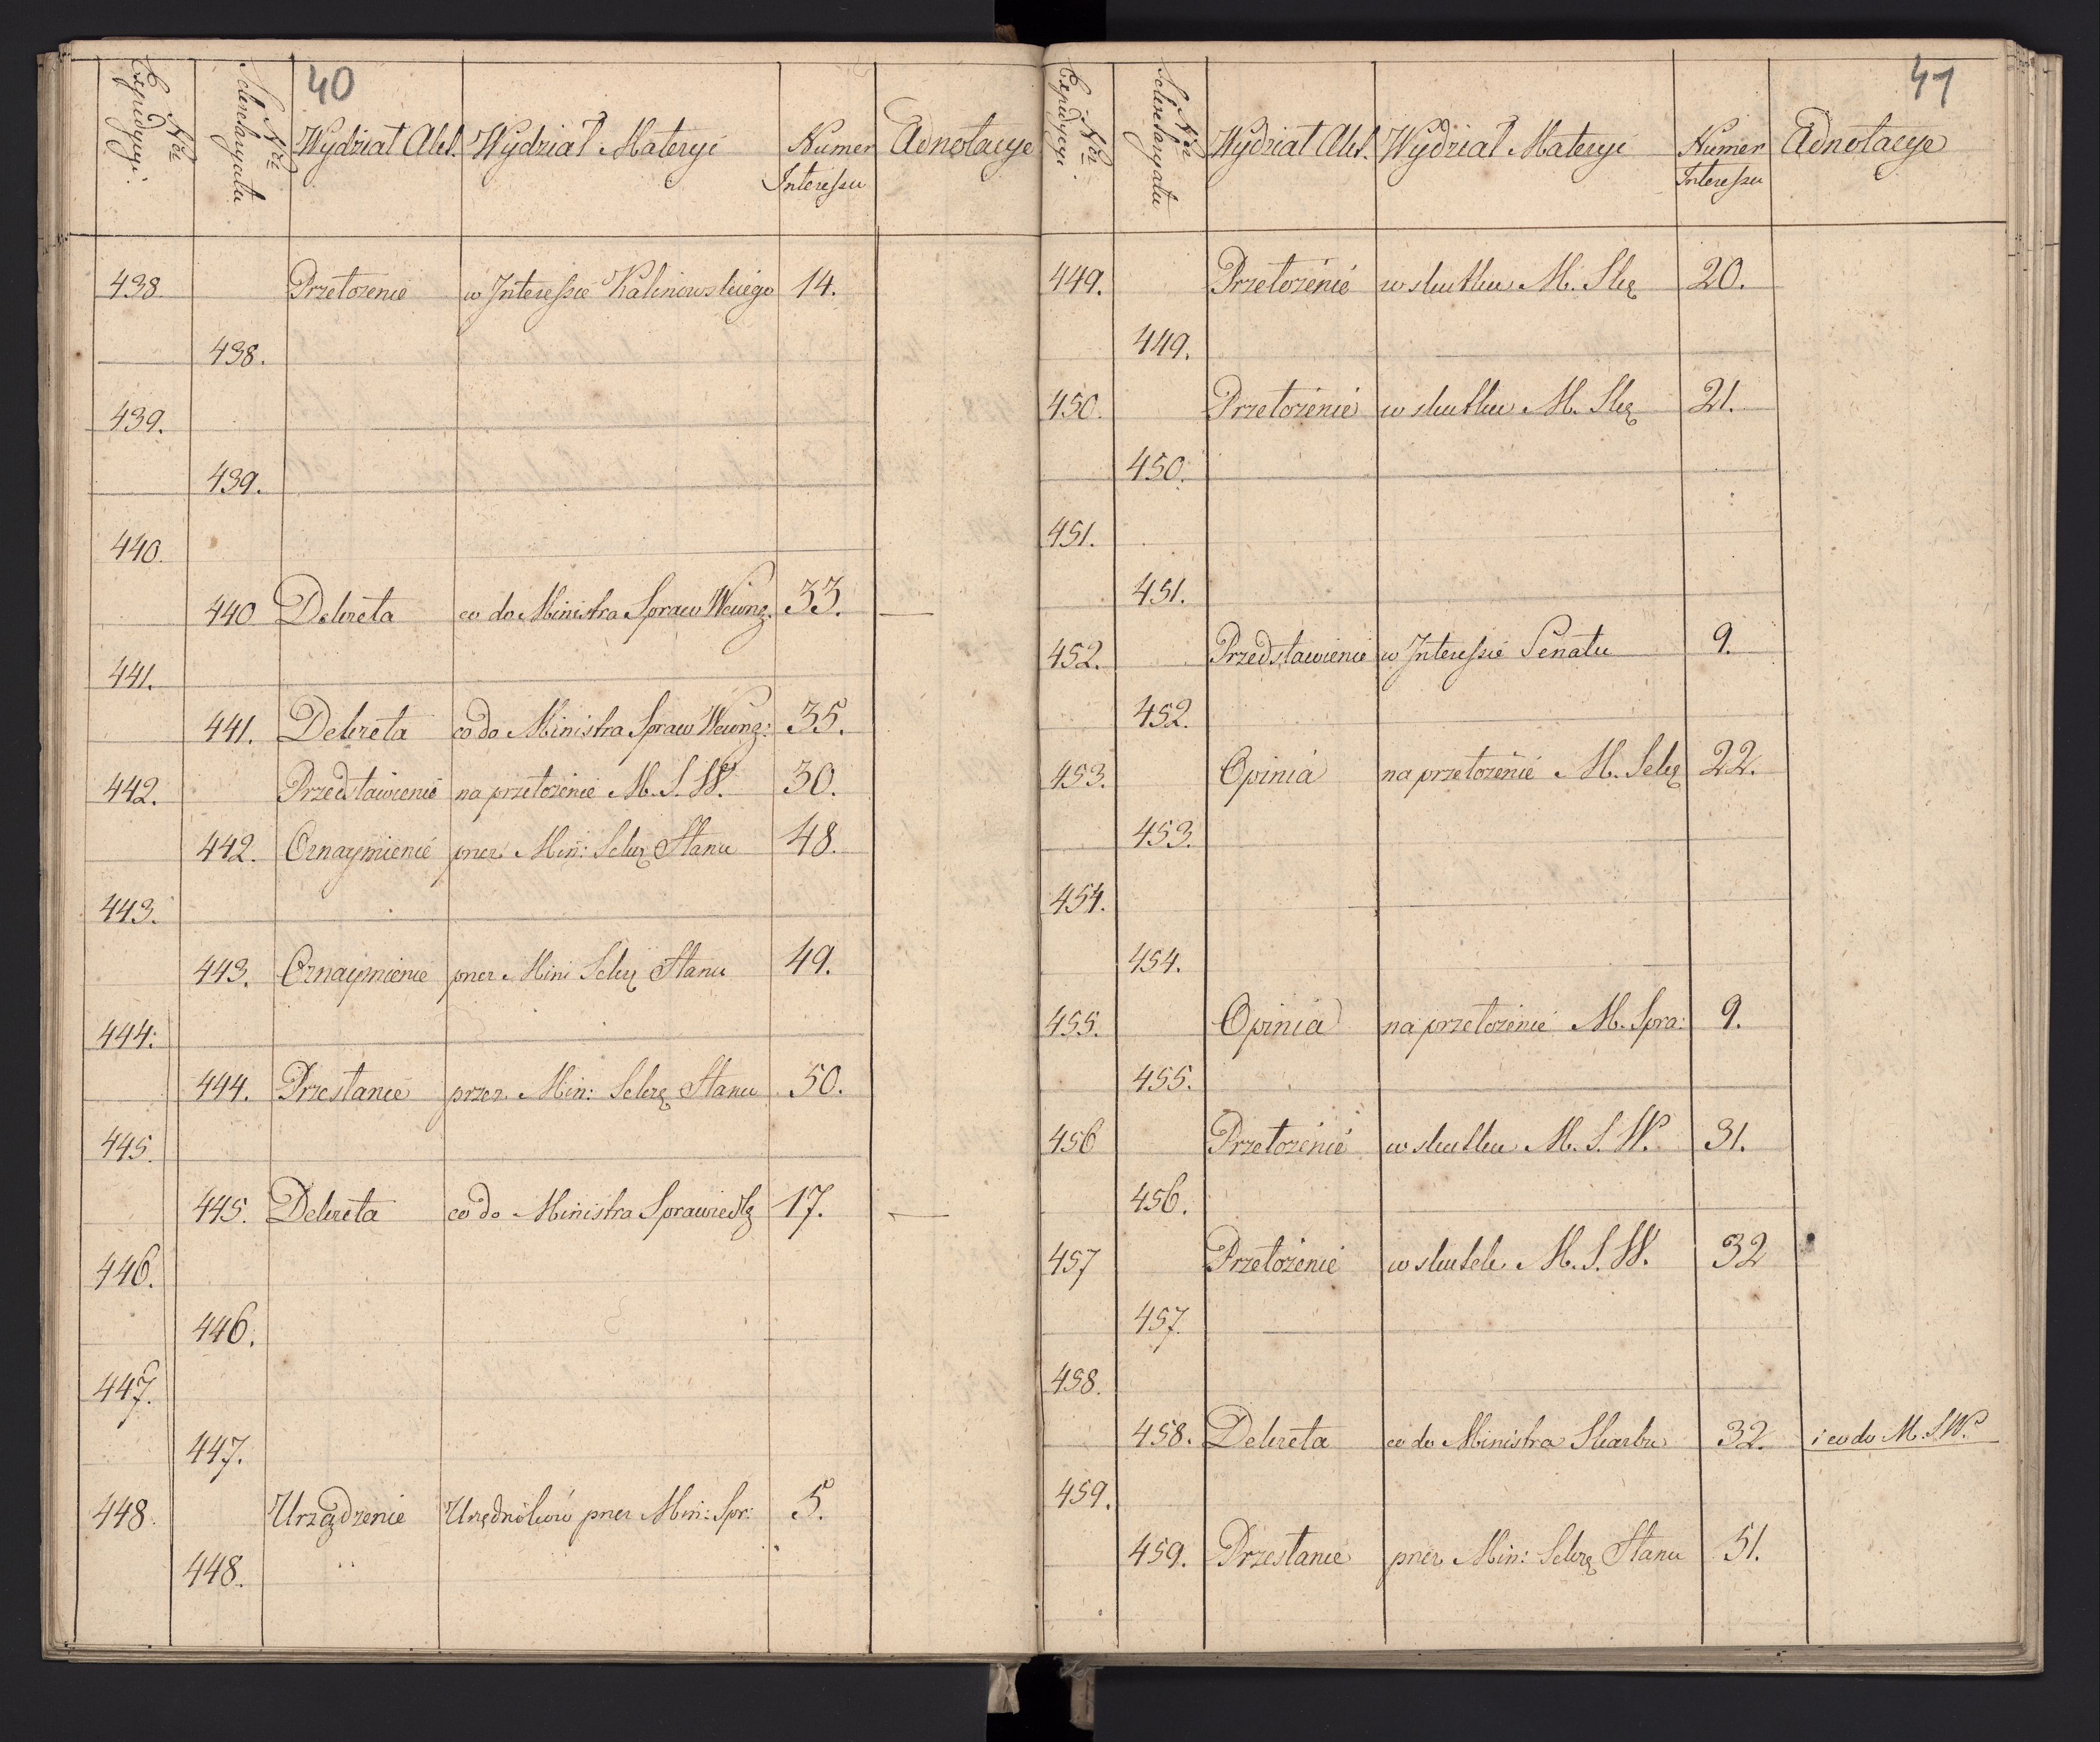 40
Nr Expedycyi. Nr Sekretaryatu Wydział Akt. Wydział Materyi Numer Interessu Adnotacye
438. Przełożenie w Interessie Kalinowskiego 14.
438.
439.
439.
440.
440 Dekreta co do Ministra Spraw Wewnę. 33. —
441.
441. Dekreta co do Ministra Spraw Wewnę: 35.
442. Przedstawienie na przełożenie M. S. W. 30.
442. Oznaymienie przez Min: Sekrę Stanu 48.
443.
443. Oznaymienie przez Mini Sekrę Stanu 49.
444:
444. Przesłanie przez Min: Sekrę Stanu 50.
445.
445. Dekreta co do Ministra Sprawiedlę 17. —
446.
446.
447.
447.
448. Urządzenie Urzędników przez Min: Spr: 5.
448.
41
Nr Expedycyi. Nr Sekretaryatu Wydział Akt. Wydział Materyi Numer Interessu Adnotacye
449. Przełożenie w skutku M. Skę 20.
449.
450. Przełożenie w skutku M. Skę 21.
450.
451.
451.
452. Przedstawienie w Interessie Senatu 9.
452.
453. Opinia na przełożenie M. Sekę 22.
453.
454.
454.
455. Opinia na przełożenie M. Spra: 9.
455.
456 Przełożenie w skutku M. S. W. 31.
456.
457 Przełożenie w skutek M. S. W. 32
457.
458.
458. Dekreta co do Ministra Skarbu 32. i co do M. S W.
459.
459. Przesłanie przez Min: Sekrę Stanu 51.